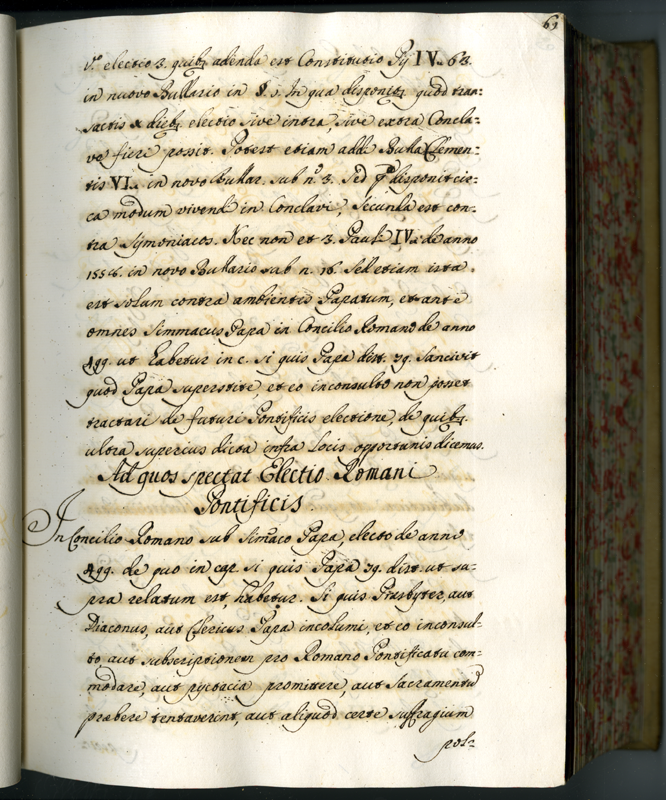 61
electio 3. quib9 adenda est Constitutio Pij IV. 63.
in nuovo Bullario in §. 1. In qua disponit9 quod tran=
sactis x dieb9 electio sive intra, sive extra Concla=
ve fieri possit. Potest etiam addi Bulla Clemen=
tis VI. in novo Bullar. sub n.º 3. Sed disponit cir=
ca modum vivendi in Conclavi, Secunda est con=
tra Symoniacos. Nec non et 3. Pauli IV. de anno
1558. in novo Bullario sub n. 16. Sed etiam ista
est solum contra ambientes Papatum, et ante
omnes Simmacus Papa in Concilio Romano de anno
499. ut habetur in c. si quis Papa dist. 79. Sancivit
quod Papa superstite, et eo inconsulto non posset
tractari de futuri Pontificis electione, de quib9
ultra superius dicta infra locis opportunis dicemus.
Ad quos spectat Electio Romani
Pontificis
In Concilio Romano sub Simaco Papa, electo de anno
499. de quo in cap. si quis Papa 79. dist. ut su=
pra relatum est, habetur. Si quis Presbyter, aut
Diaconus, aut Clericus Papa incolumi, et eo inconsul=
to, aut subscriptionem pro Romano Pontificatu com=
modare, aut pyctacia promittere, aut Sacramentum
præbere tentaverint, aut aliquod certe suffragium
pol=